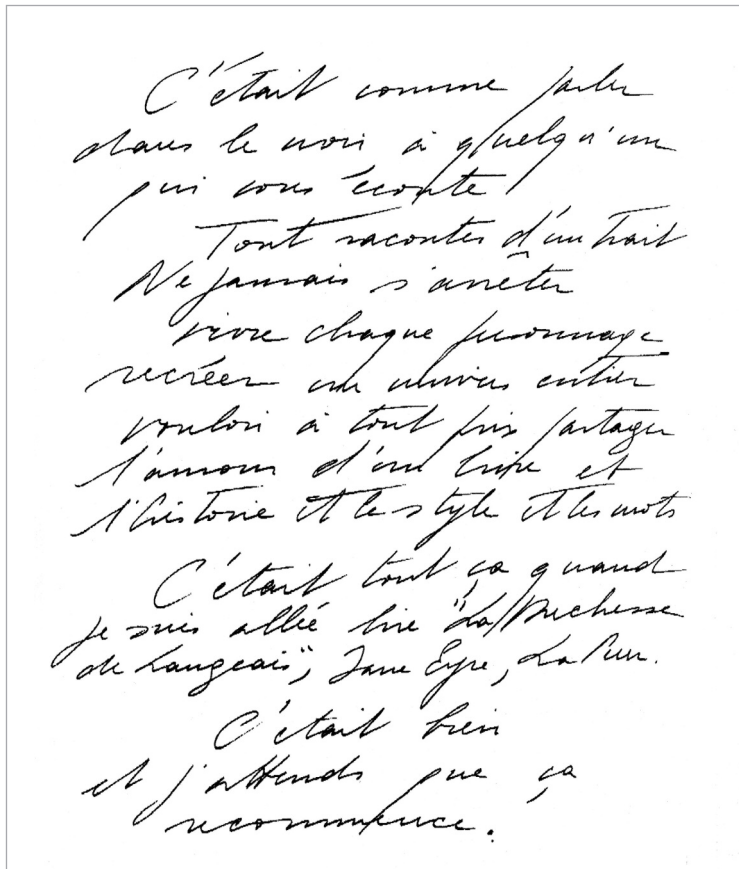 C'était comme parler
dans le noir, à quelqu'un
qui vous écoute
Tout raconter d'un trait
Ne jamais s'arrêter
vivre chaque personnage
recréer un univers entier
vouloir à tout prix partager
l'amour d'un livre et
l'histoire et le style et les mots
C'était tout ça quand
je suis allée lire "La Duchesse
de Langeais", Jane Eyre, La
C'était bien
et j'attends que ça
recommence.